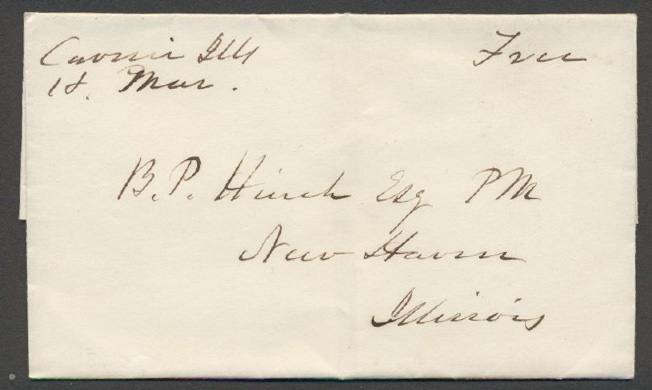 Carmi Ills Free
18. Mar.
B. P. Hinch Esq PM
New Haven
Illinois